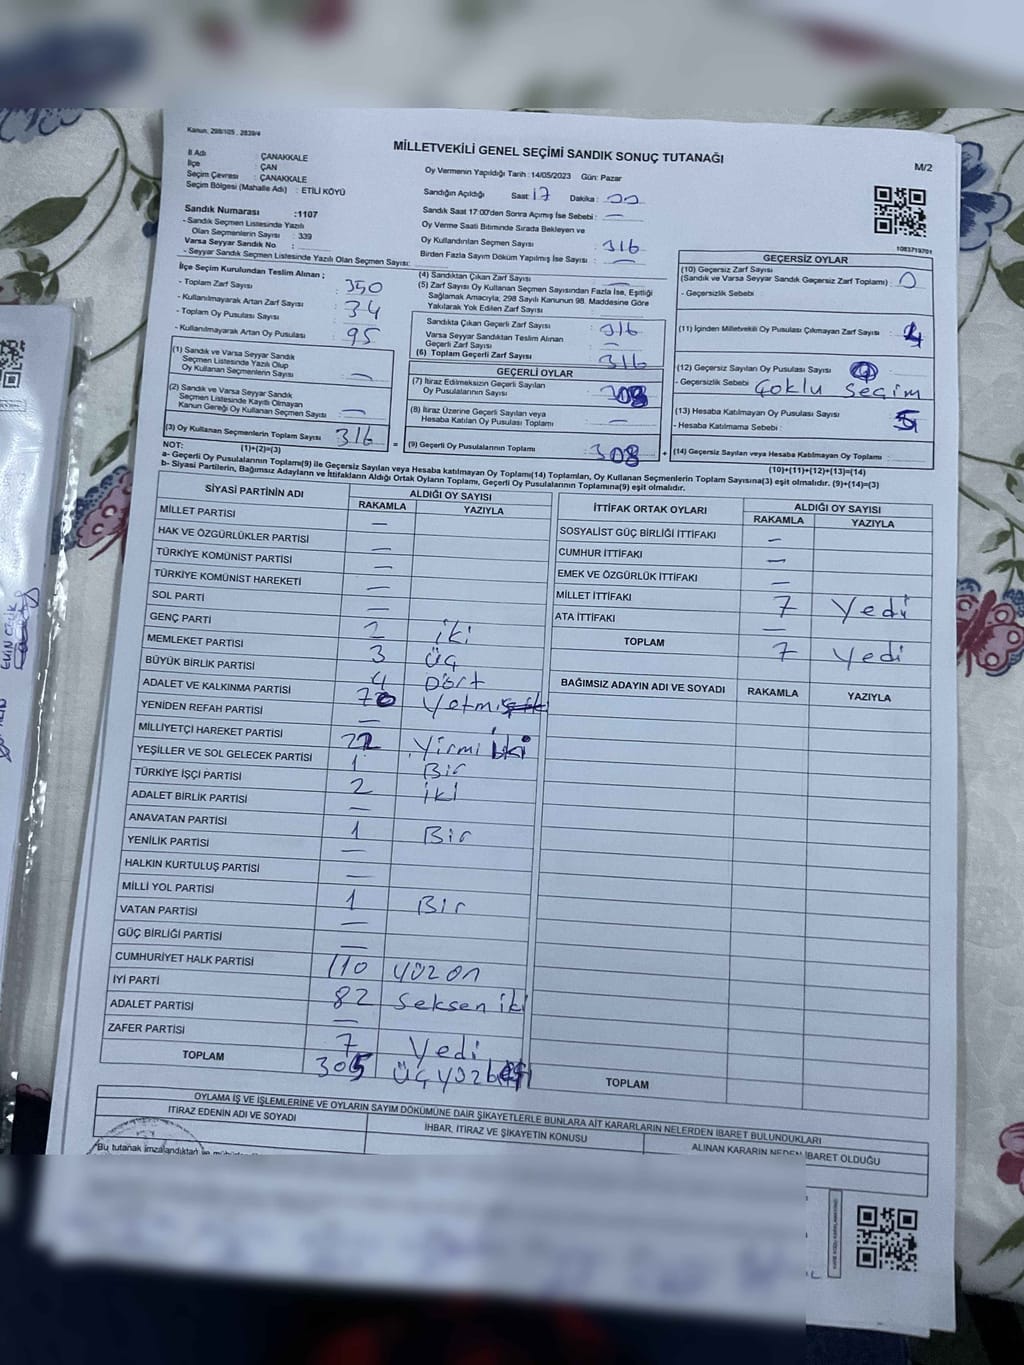 Kanun, 298/105 , 2839/4
MİLLETVEKİLİ GENEL SEÇİMİ SANDIK SONUÇ TUTANAĞI
M/2
İl Adı : ÇANAKKALE
İlçe : ÇAN
Seçim Çevresi : ÇANAKKALE
Seçim Bölgesi (Mahalle Adı) : ETİLİ KÖYÜ
Sandık Numarası :1107
- Sandık Seçmen Listesinde Yazılı
Olan Seçmenlerin Sayısı : 339
Varsa Seyyar Sandık No :
- Seyyar Sandık Seçmen Listesinde Yazılı Olan Seçmen Sayısı:
Oy Vermenin Yapıldığı Tarih : 14/05/2023 Gün: Pazar
Sandığın Açıldığı Saat: 17 Dakika : 00
Sandık Saat 17:00'den Sonra Açılmış İse Sebebi : —
Oy Verme Saati Bitiminde Sırada Bekleyen ve
Oy Kullandırılan Seçmen Sayısı : 316
Birden Fazla Sayım Döküm Yapılmış İse Sayısı : —
1083719701
İlçe Seçim Kurulundan Teslim Alınan ;
- Toplam Zarf Sayısı : 350
- Kullanılmayarak Artan Zarf Sayısı : 34
- Toplam Oy Pusulası Sayısı :
- Kullanılmayarak Artan Oy Pusulası : 95
(1) Sandık ve Varsa Seyyar Sandık
Seçmen Listesinde Yazılı Olup
Oy Kullanan Seçmenlerin Sayısı : —
(2) Sandık ve Varsa Seyyar Sandık
Seçmen Listesinde Kayıtlı Olmayan
Kanun Gereği Oy Kullanan Seçmen Sayısı : —
(3) Oy Kullanan Seçmenlerin Toplam Sayısı : 316
(1)+(2)=(3)
(4) Sandıktan Çıkan Zarf Sayısı : —
(5) Zarf Sayısı Oy Kullanan Seçmen Sayısından Fazla İse, Eşitliği
Sağlamak Amacıyla; 298 Sayılı Kanunun 98. Maddesine Göre
Yakılarak Yok Edilen Zarf Sayısı : —
Sandıkta Çıkan Geçerli Zarf Sayısı : 316
Varsa Seyyar Sandıktan Teslim Alınan
Geçerli Zarf Sayısı : —
(6) Toplam Geçerli Zarf Sayısı : 316
GEÇERLİ OYLAR
(7) İtiraz Edilmeksizin Geçerli Sayılan
Oy Pusulalarının Sayısı : 308
(8) İtiraz Üzerine Geçerli Sayılan veya
Hesaba Katılan Oy Pusulası Toplamı : —
= (9) Geçerli Oy Pusulalarının Toplamı : 308 +
GEÇERSİZ OYLAR
(10) Geçersiz Zarf Sayısı
(Sandık ve Varsa Seyyar Sandık Geçersiz Zarf Toplamı) : 0
- Geçersizlik Sebebi :
(11) İçinden Milletvekili Oy Pusulası Çıkmayan Zarf Sayısı :
(12) Geçersiz Sayılan Oy Pusulası Sayısı :
- Geçersizlik Sebebi : Çoklu Seçim
(13) Hesaba Katılmayan Oy Pusulası Sayısı :
- Hesaba Katılmama Sebebi :
(14) Geçersiz Sayılan veya Hesaba Katılmayan Oy Toplamı :
(10)+(11)+(12)+(13)=(14)
NOT:
a- Geçerli Oy Pusulalarının Toplamı(9) ile Geçersiz Sayılan veya Hesaba katılmayan Oy Toplamı(14) Toplamları, Oy Kullanan Seçmenlerin Toplam Sayısına(3) eşit olmalıdır. (9)+(14)=(3)
b- Siyasi Partilerin, Bağımsız Adayların ve İttifakların Aldığı Ortak Oyların Toplamı, Geçerli Oy Pusulalarının Toplamına(9) eşit olmalıdır.
SİYASİ PARTİNİN ADI ALDIĞI OY SAYISI
RAKAMLA YAZIYLA
MİLLET PARTİSİ —
HAK VE ÖZGÜRLÜKLER PARTİSİ —
TÜRKİYE KOMÜNİST PARTİSİ —
TÜRKİYE KOMÜNİST HAREKETİ —
SOL PARTİ —
GENÇ PARTİ 2 iki
MEMLEKET PARTİSİ 3 üç
BÜYÜK BİRLİK PARTİSİ 4 Dört
ADALET VE KALKINMA PARTİSİ 70 Yetmiş
YENİDEN REFAH PARTİSİ —
MİLLİYETÇİ HAREKET PARTİSİ 22 Yirmi İki
YEŞİLLER VE SOL GELECEK PARTİSİ 1 Bir
TÜRKİYE İŞÇİ PARTİSİ 2 iki
ADALET BİRLİK PARTİSİ —
ANAVATAN PARTİSİ 1 Bir
YENİLİK PARTİSİ —
HALKIN KURTULUŞ PARTİSİ —
MİLLİ YOL PARTİSİ 1 Bir
VATAN PARTİSİ —
GÜÇ BİRLİĞİ PARTİSİ —
CUMHURİYET HALK PARTİSİ 110 yüz on
İYİ PARTİ 82 Seksen iki
ADALET PARTİSİ —
ZAFER PARTİSİ 7 Yedi
TOPLAM 305 üçyüzbeş
İTTİFAK ORTAK OYLARI ALDIĞI OY SAYISI
RAKAMLA YAZIYLA
SOSYALİST GÜÇ BİRLİĞİ İTTİFAKI —
CUMHUR İTTİFAKI —
EMEK VE ÖZGÜRLÜK İTTİFAKI —
MİLLET İTTİFAKI 7 Yedi
ATA İTTİFAKI —
TOPLAM 7 Yedi
BAĞIMSIZ ADAYIN ADI VE SOYADI RAKAMLA YAZIYLA
TOPLAM
OYLAMA İŞ VE İŞLEMLERİNE VE OYLARIN SAYIM DÖKÜMÜNE DAİR ŞİKAYETLERLE BUNLARA AİT KARARLARIN NELERDEN İBARET BULUNDUKLARI
İTİRAZ EDENİN ADI VE SOYADI İHBAR, İTİRAZ VE ŞİKAYETİN KONUSU ALINAN KARARIN NEDEN İBARET OLDUĞU
Bu tutanak imzalandıktan